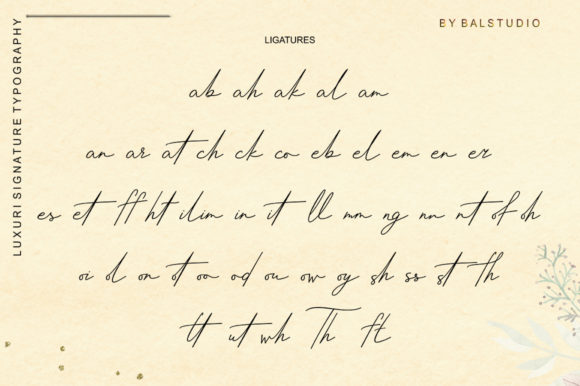 BY BALSTUDIO
LUXURI SIGNATURE TYPOGRAPHY
LIGATURES
ab ah ak al am
an ar at ch ck co eb el em en er
es et ff ht il im in it ll mm ng nn nt of oh
oi ol on ot oo od ou ow oy sh ss st th
tt ut wh Th ft